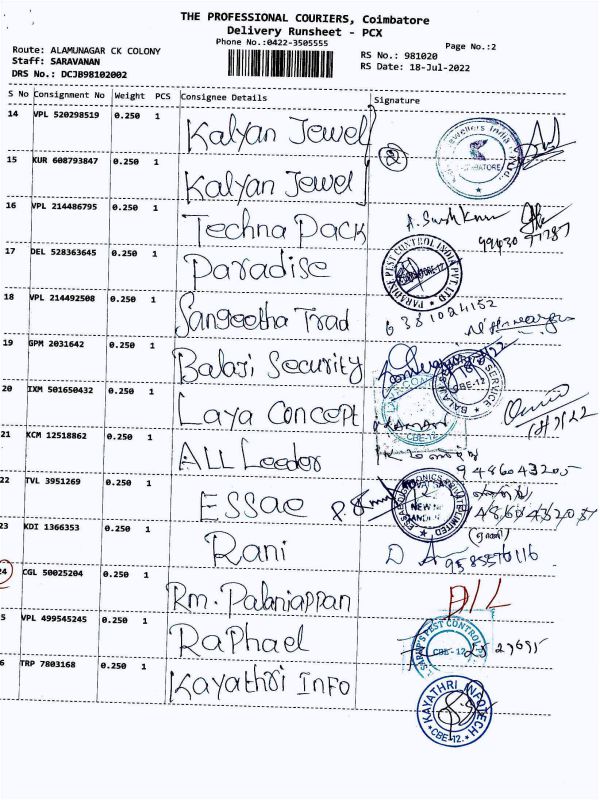 THE PROFESSIONAL COURIERS, Coimbatore
Delivery Runsheet - PCX
Phone No.:0422-3505555
Page No.:2
Route: ALAMUNAGAR CK COLONY
RS No.: 981020
Staff: SARAVANAN
RS Date: 18-Jul-2022
DRS No.: DCJB98102002
S No Consignment No Weight PCS Consignee Details Signature
14 VPL 520298519 0.250 1 Kalyan Jewel
15 KUR 608793847 0.250 1 Kalyan Jewel
16 VPL 214486795 0.250 1 Techna Pack
17 DEL 528363645 0.250 1 Paradise
PARADISE PEST CONTROL INDIA PVT. LTD
18 VPL 214492508 0.250 1 Sangeetha Trad
6381024152
19 GPM 2031642 0.250 1 Balaji Security
BALAJI SERVICE
CBE-12
20 IXM 501650432 0.250 1 Laya Concept
CBE-12
21 KCM 12518862 0.250 1 ALL Leeder
9486043205
22 TVL 3951269 0.250 1 ESSae
23 KDI 1366353 0.250 1 Rani
24 CGL 50025204 0.250 1 Rm. Palaniappan
D/L
5 VPL 499545245 0.250 1 Raphael
PEST CONTROL
CBE-12
6 TRP 7803168 0.250 1 Kayathri Info
KAYATHRI INFOTECH
CBE-12.